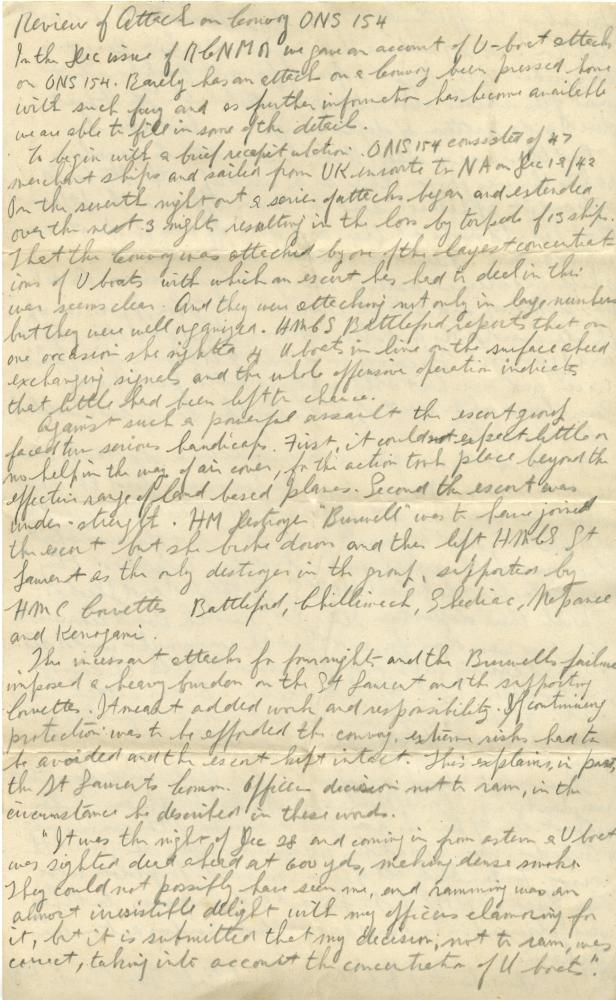 Review of Attack on Convoy ONS 154
In the Dec issue of RCNMR we gave an account of U-boat attacks
on ONS 154. Rarely has an attack on a Convoy been pressed home
with such fury and as further information has become available
we are able to fill in some of the detail.
To begin with a brief recapitulation. ONS 154 consisted of 47
merchant ships and sailed from UK enroute to NA on Dec 18/42
On the seventh night out a series of attacks began and extended
over the next 3 nights resulting in the loss by torpedo of 13 ships.
That the Convoy was attacked by one of the largest concentrat
ions of U boats with which an escort has had to deal in this
war seems clear. And they were attacking not only in large numbers
but they were well organized. HMCS Battleford reports that on
one occasion she sighted 4 U boats in line on the surface ahead
exchanging signals and the whole offensive operation indicates
that little had been left to chance.
Against such a powerful assault the escort group
faced two serious handicaps. First, it could not expect little or
no help in the way of air cover, for this action took place beyond the
effective range of land based planes. Second the escort was
under-strength. HM Destroyer "Burwell" was to have joined
the escort but she broke down and this left HMCS St
Laurent as the only destroyer in the group, supported by
HMC Corvettes Battleford, Chilliwack, Shediac, Napanee
and Kenogami.
The incessant attacks for four nights and the Burwells failure
imposed a heavy burden on the St Laurent and the supporting
Corvettes. It meant added work and responsibility. If continuing
protection was to be afforded the convoy, extreme risks had to
be avoided and the escort kept intact. This explains, in part,
the St Laurents Comm. Officers decision not to ram, in the
circumstance he described in these words.
"It was the night of Dec 28 and coming in from astern a U boat
was sighted dead ahead at 600 yds, making dense smoke
They could not possibly have seen me, and ramming was an
almost irresistible delight with my officers clamoring for
it, but it is submitted that my decision, not to ram, was
correct, taking into account the concentration of U boats".